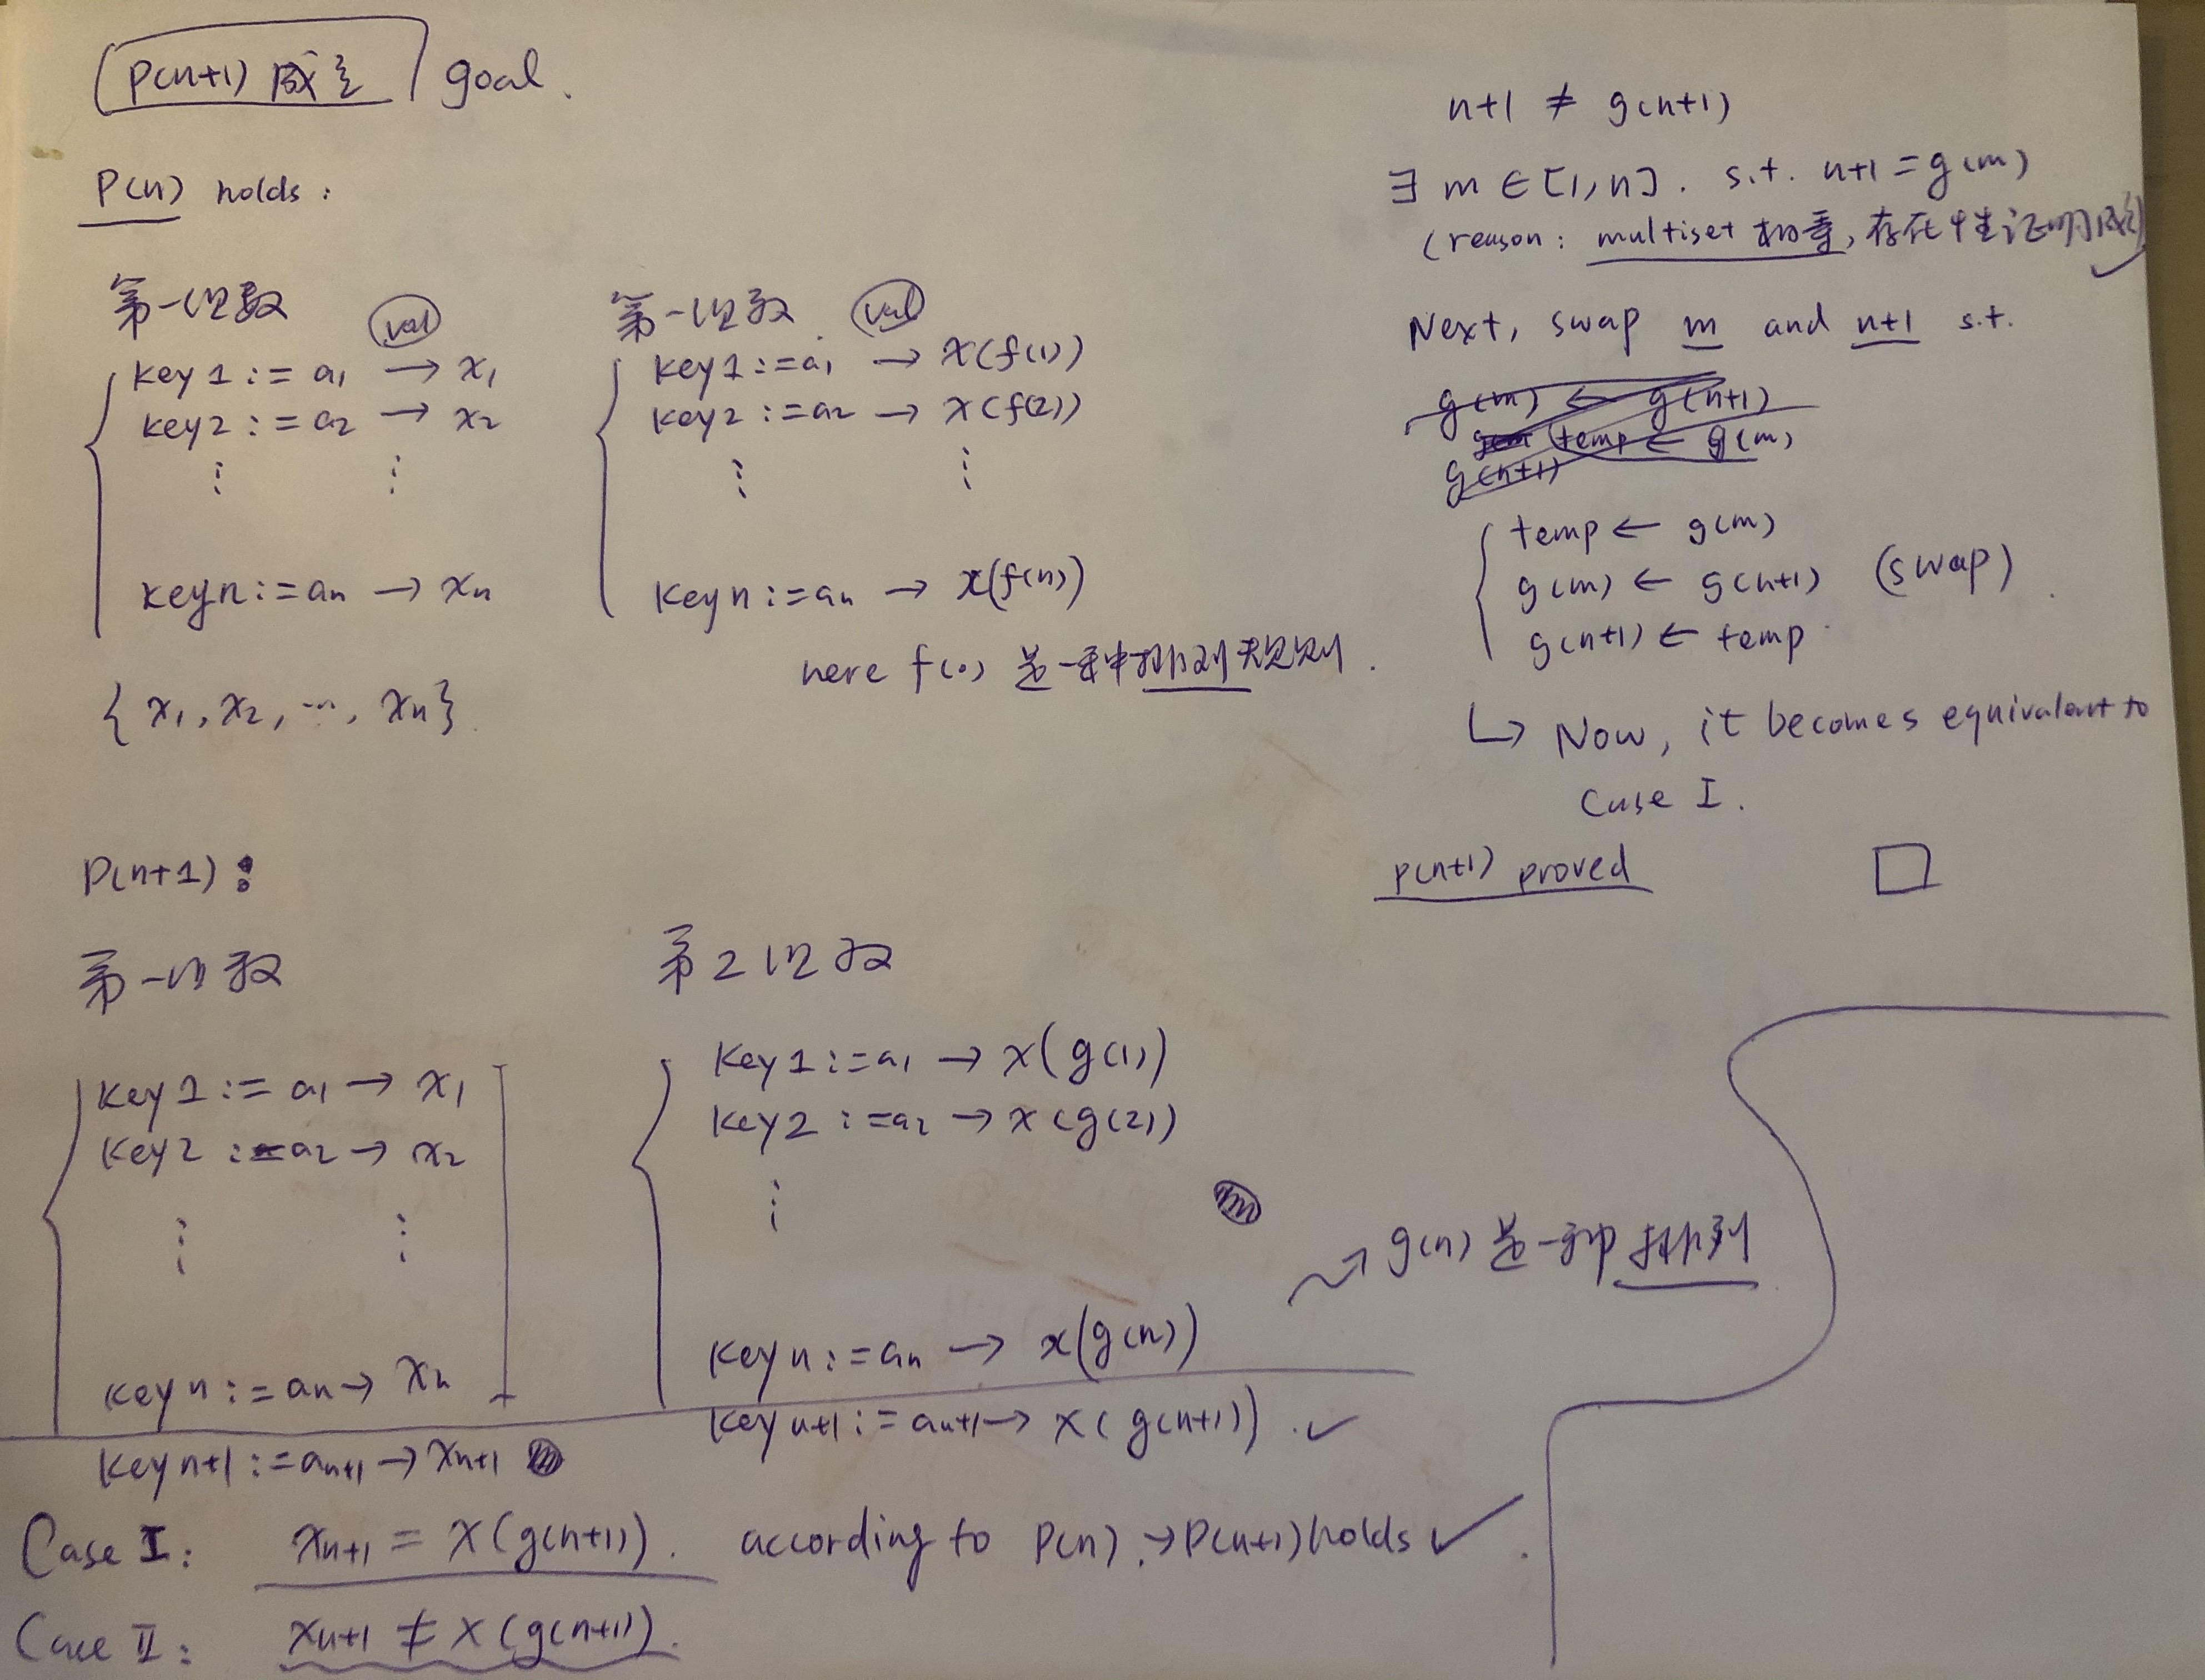 P(n+1) 成立 goal.
P(n) holds:
第一组数 val
key1 := a1 → x1
key2 := a2 → x2
⋮ ⋮
keyn := an → xn
{x1, x2, ..., xn}
第一组数 val
key1 := a1 → x(f(1))
key2 := a2 → x(f(2))
⋮ ⋮
keyn := an → x(f(n))
here f(·) 是一种排列规则.
P(n+1):
第一组数
key1 := a1 → x1
key2 := a2 → x2
⋮ ⋮
keyn := an → xn
keyn+1 := an+1 → xn+1
第2组数
key1 := a1 → x(g(1))
key2 := a2 → x(g(2))
⋮
keyn := an → x(g(n))
keyn+1 := an+1 → x(g(n+1)). ✓
g(n) 是一种排列
Case I: xn+1 = x(g(n+1)). according to P(n). → P(n+1) holds ✓.
Case II: xn+1 ≠ x(g(n+1)).
n+1 ≠ g(n+1)
∃ m ∈ [1,n]. s.t. n+1 = g(m)
(reason: multiset 相等, 存在性证明成立) ✓
Next, swap m and n+1 s.t.
g(m) ← g(n+1)
temp ← g(m)
g(n+1)
temp ← g(m)
g(m) ← g(n+1) (swap).
g(n+1) ← temp
↳ Now, it becomes equivalent to
Case I.
P(n+1) proved □